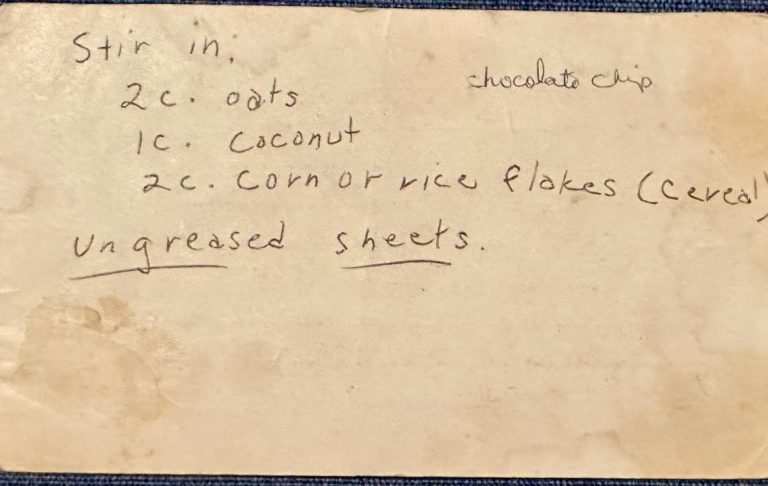 Stir in;
chocolate chip
2 c. oats
1 c. Coconut
2 c. Corn or rice flakes (Cereal)
Ungreased sheets.